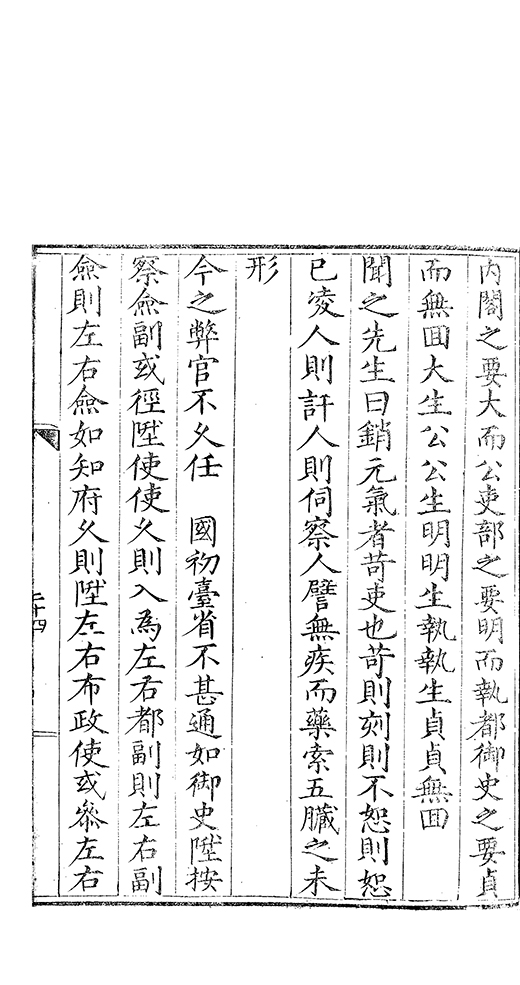 內閣之要大而公吏部之要明而執都御史之要貞
而無囬大生公公生明明生執執生貞貞無囬
聞之先生曰銷元氣者苛吏也苛則刻則不恕則恕
已凌人則訐人則伺察人譬無疾而藥索五臟之未
形
今之弊官不久任　國初臺省不甚通如御史陞按
察僉副或徑陞使使久則入為左右都副則左右副
僉則左右僉如知府久則陞左右布政使或叅左右
二十四